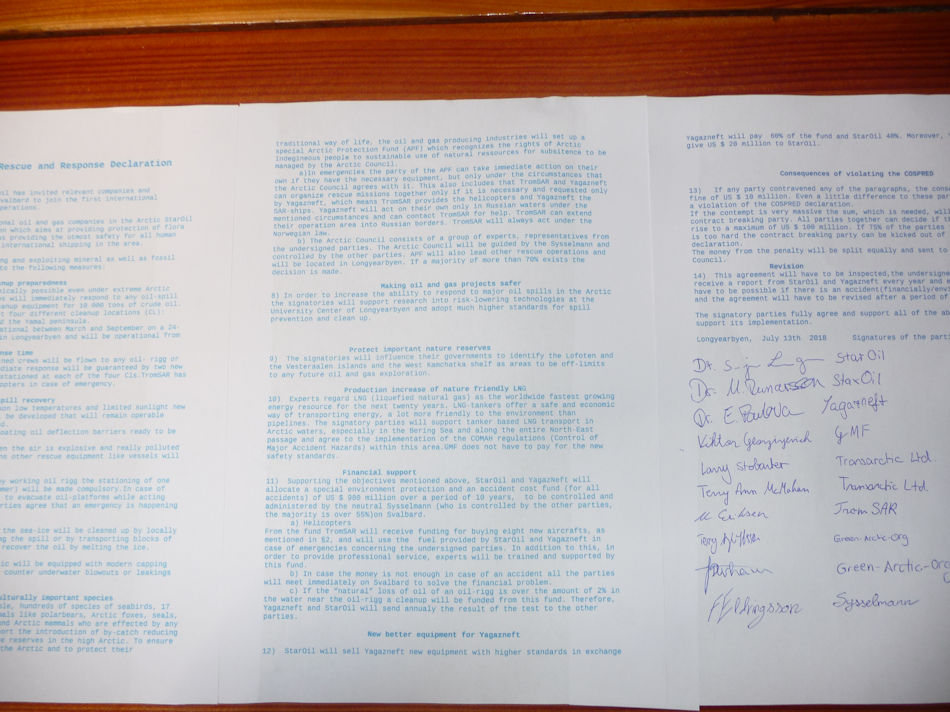 Rescue and Response Declaration
oil has invited relevant companies and
valbard to join the first international
perations.
onal oil and gas companies in the Arctic StarOil
en which aims at providing protection of flora
as providing the utmost safety for all human
international shipping in the area.
ng and exploiting mineral as well as fossil
to the following measures:
anup preparedness
nically possible even under extreme Arctic
es will immediately respond to any oil-spill
leanup equipment for 10 000 tons of crude oil.
at four different cleanup locations (CL):
d the Yamal peninsula.
ational between March and September on a 24-
in Longyearbyen and will be operational from
nse time
ined crews will be flown to any oil- rigg or
mediate response will be guaranteed by two new
stationed at each of the four Cls.TromSAR has
opters in case of emergency.
pill recovery
on low temperatures and limited sunlight new
be developed that will remain operable
d.
oating oil deflection barriers ready to be
en the air is explosive and really polluted
ns other rescue equipment like vessels will
y working oil rigg the stationing of one
mmer) will be made compulsory.In case of
to evacuate oil-platforms while acting
rties agree that an emergency is happening
the sea-ice will be cleaned up by locally
ng the spill or by transporting blocks of
recover the oil by melting the ice.
ic will be equipped with modern capping
counter underwater blowouts or leakings
ulturally important species
le, hundreds of species of seabirds, 17.
mals like polarbears, Arctic foxes, seals,
and Arctic mammals who are effected by any
port the introduction of by-catch reducing
e reserves in the high Arctic. To ensure
the Arctic and to protect their
traditional way of life, the oil and gas producing industries will set up a
special Arctic Protection Fund (APF) which recognizes the rights of Arctic
Indegineous people to sustainable use of natural ressources for subsitence to be
managed by the Arctic Council.
a)In emergencies the party of the APF can take immediate action on their
own if they have the necessary equipment, but only under the circumstances that
the Arctic Council agrees with it. This also includes that TromSAR and Yagazneft
can organize rescue missions together only if it is necessary and requested only
by Yagazneft, which means TromSAR provides the helicopters and Yagazneft the
SAR-ships. Yagazneft will act on their own only in Russian waters under the
mentioned circumstances and can contact TromSAR for help. TromSAR can extend
their operation area into Russian borders. TromSAR will always act under the
Norwegian law.
b) The Arctic Council consists of a group of experts, representatives from
the undersigned parties. The Arctic Council will be guided by the Sysselmann and
controlled by the other parties. APF will also lead other rescue operations and
will be located in Longyearbyen. If a majority of more than 70% exists the
decision is made.
Making oil and gas projects safer
8) In order to increase the ability to respond to major oil spills in the Arctic
the signatories will support research into risk-lowering technologies at the
University Center of Longyearbyen and adopt much higher standards for spill
prevention and clean up.
Protect important nature reserves
9) The signatories will influence their governments to identify the Lofoten and
the Vesteraalen islands and the West Kamchatka shelf as areas to be off-limits
to any future oil and gas exploration.
Production increase of nature friendly LNG
10) Experts regard LNG (liquefied natural gas) as the worldwide fastest growing
energy resource for the next twenty years. LNG-tankers offer a safe and economic
way of transporting energy, a lot more friendly to the environment than
pipelines. The signatory parties will support tanker based LNG transport in
Arctic waters, especially in the Bering Sea and along the entire North-East
passage and agree to the implementation of the COMAH regulations (Control of
Major Accident Hazards) within this area.GMF does not have to pay for the new
safety standards.
Financial support
11) Supporting the objectives mentioned above, StarOil and YagazNeft will
allocate a special environment protection and an accident cost fund (for all
accidents) of US $ 900 million over a period of 10 years, to be controlled and
administered by the neutral Sysselmann (who is controlled by the other parties,
the majority is over 55%)on Svalbard.
a) Helicopters
From the fund TromSAR will receive funding for buying eight new aircrafts, as
mentioned in §2, and will use the fuel provided by StarOil and Yagazneft in
case of emergencies concerning the undersigned parties. In addition to this, in
order to provide professional service, experts will be trained and supported by
this fund.
b) In case the money is not enough in case of an accident all the parties
will meet immediately on Svalbard to solve the financial problem.
c) If the "natural" loss of oil of an oil-rigg is over the amount of 2% in
the water near the oil-rigg a cleanup will be funded from this fund. Therefore,
Yagazneft and StarOil will send annualy the result of the test to the other
parties.
New better equipment for Yagazneft
12) StarOil will sell Yagazneft new equipment with higher standards in exchange
Yagazneft will pay 60% of the fund and StarOil 40%. Moreover,
give US $ 20 million to StarOil.
Consequences of violating the COSPRED
13) If any party contravened any of the paragraphs, the cons
fine of US $ 10 million. Even a little difference to these par
a violation of the COSPRED declaration.
If the contempt is very massive the sum, which is needed, wil
contract breaking party. All parties together can decide if t
rise to a maximum of US $ 100 million. If 75% of the parties
is too hard the contract breaking party can be kicked out of
declaration.
The money from the penalty will be split equally and sent to
Council.
Revision
14) This agreement will have to be inspected,the undersign
receive a report from StarOil and Yagazneft every year and e
have to be possible if there is an accident(financially/envi
and the agreement will have to be revised after a period of
The signatory parties fully agree and support all of the abo
support its implementation.
Longyearbyen, July 13th 2018 Signatures of the parti
Dr. StarOil
Dr. M. Runarsson StarOil
Dr. E. Pavlova Yagazneft
Viktor Georgiyevich GMF
Larry Stobarter Transarctic Ltd.
Terry Ann McMahen Transarctic Ltd.
Eriksen TromSAR
Green-Arctic-Org
Green-Arctic-Org
Sysselmann